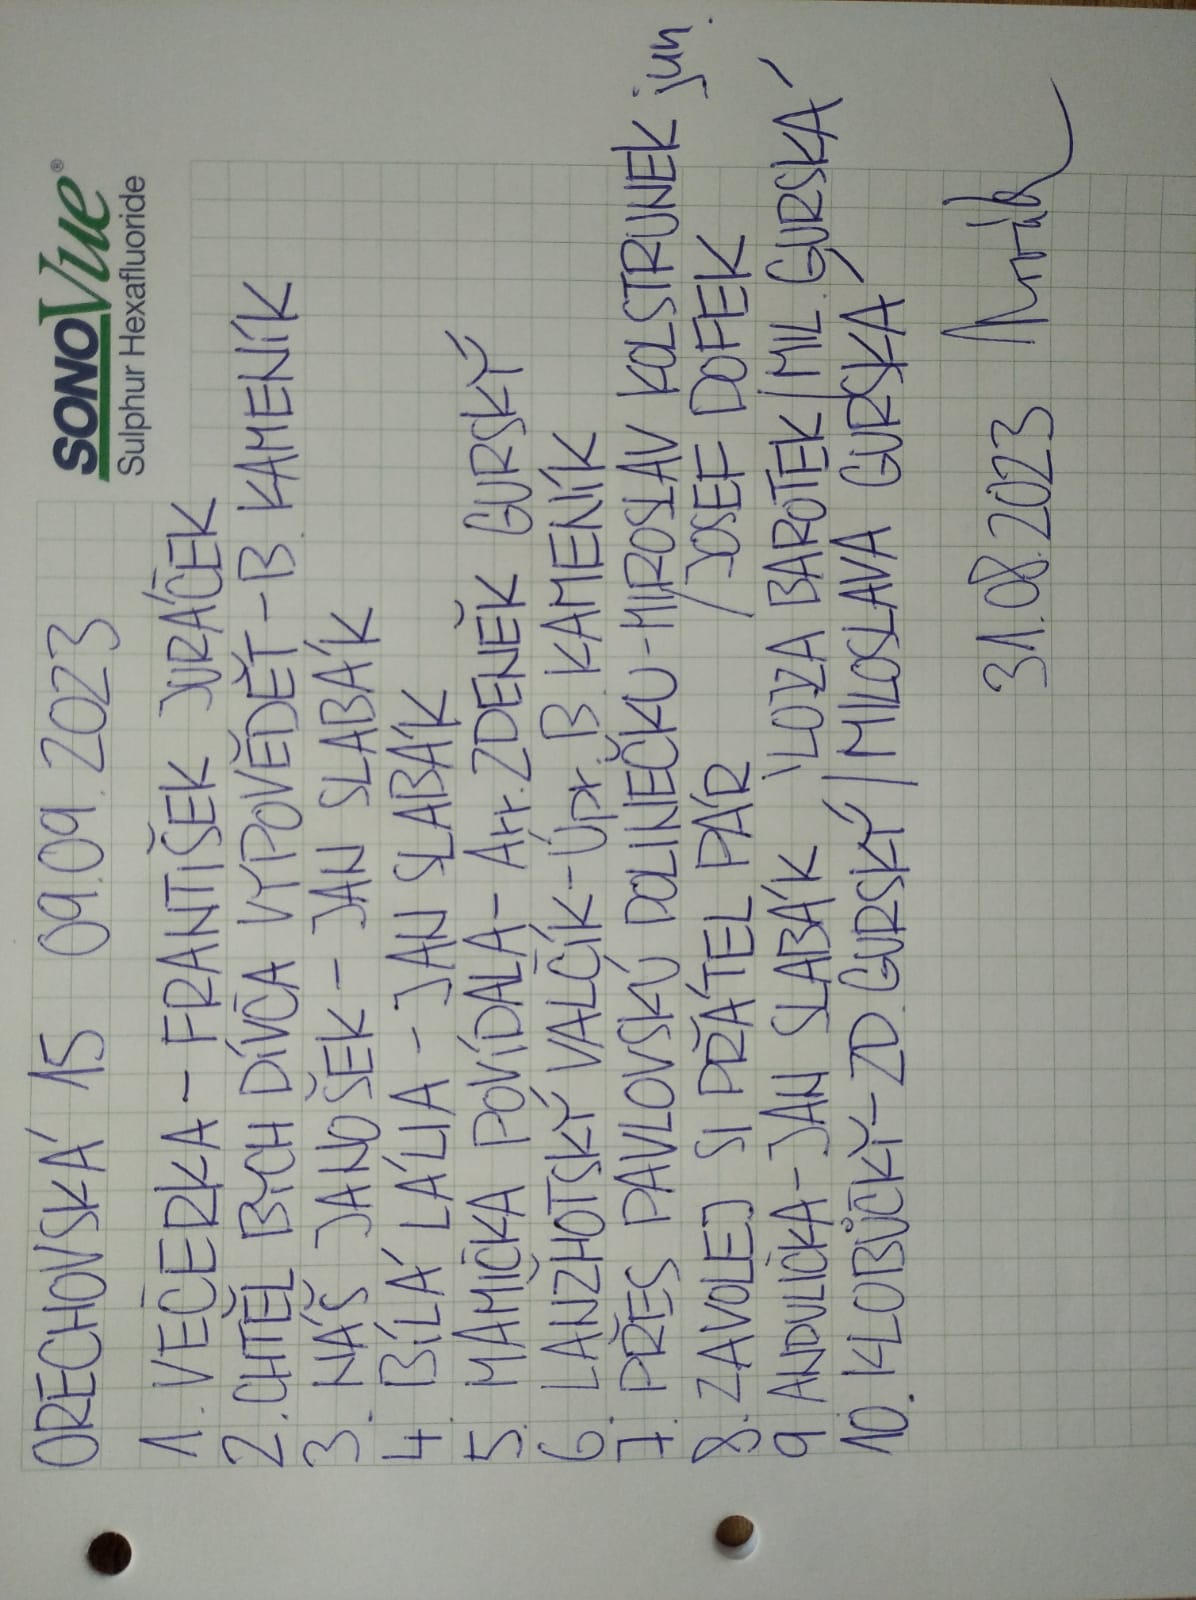 SONOVue®
Sulphur Hexafluoride
OŘECHOVSKÁ 15 09.09.2023
1. VEČERKA - FRANTIŠEK JURÁČEK
2. CHTĚL BYCH DÍVČA VYPOVĚDĚT - B. KAMENÍK
3. NÁŠ JANOŠEK - JAN SLABÁK
4. BÍLÁ LÁLIA - JAN SLABÁK
5. MAMIČKA POVÍDALA - Arr. ZDENĚK GURSKÝ
6. LANŽHOTSKÝ VALČÍK - Úpr. B. KAMENÍK
7. PŘES PAVLOVSKÚ DOLINEČKU - MIROSLAV KOLSTRUNEK jun.
8. ZAVOLEJ SI PŘÁTEL PÁR / JOSEF DOFEK
9 ANDULIČKA - JAN SLABÁK LOJZA BAROTEK / MIL. GURSKÁ /
10. KLOBÚČKÝ - ZD. GURSKÝ / MILOSLAVA GURSKÁ
31.08.2023